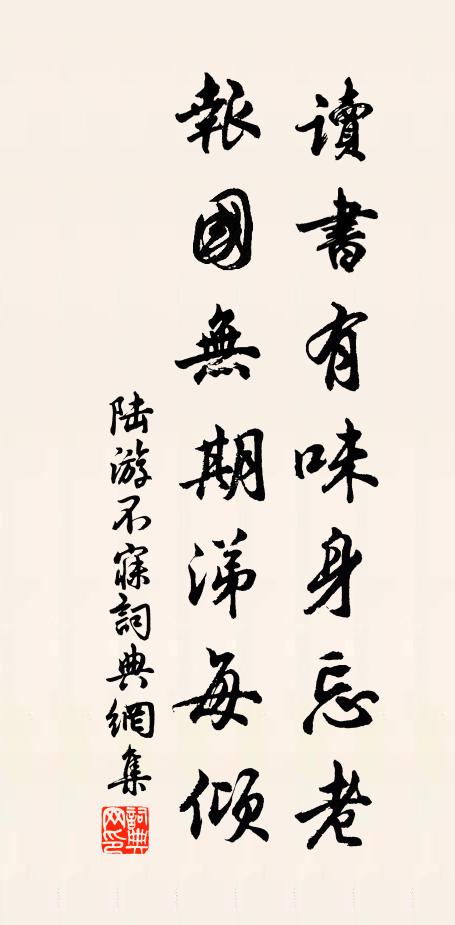 讀書有味身忘老
報國無期涕每傾
陸游不寐詞典網集
詞典網印